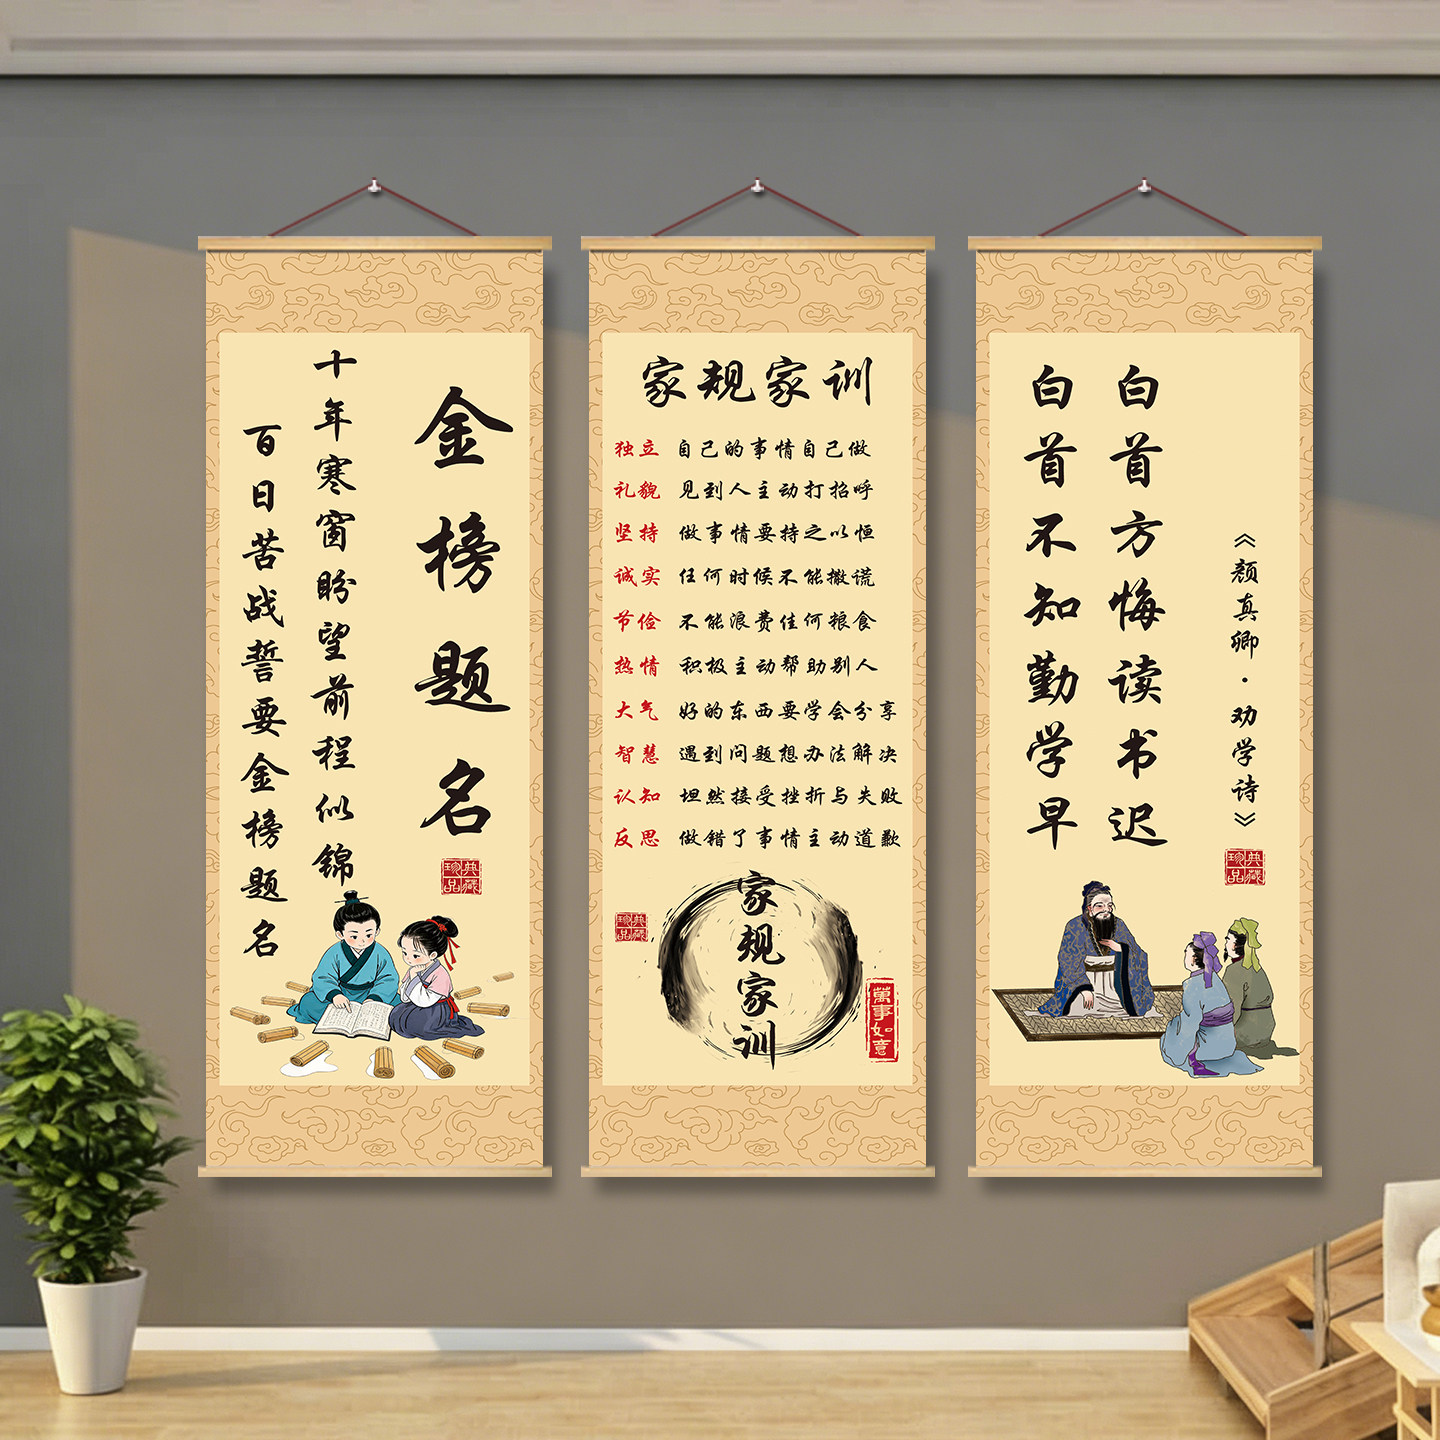 金榜题名
十年寒窗盼望前程似锦
百日苦战誓要金榜题名
典藏珍品
家规家训
独立 自己的事情自己做
礼貌 见到人主动打招呼
坚持 做事情要持之以恒
诚实 任何时候不能撒谎
节俭 不能浪费佳何粮食
热情 积极主动帮助别人
大气 好的东西要学会分享
智慧 遇到问题想办法解决
认知 坦然接受挫折与失败
反思 做错了事情主动道歉
家规家训
典藏珍品
萬事如意
《颜真卿·劝学诗》
白首方悔读书迟
白首不知勤学早
典藏珍品